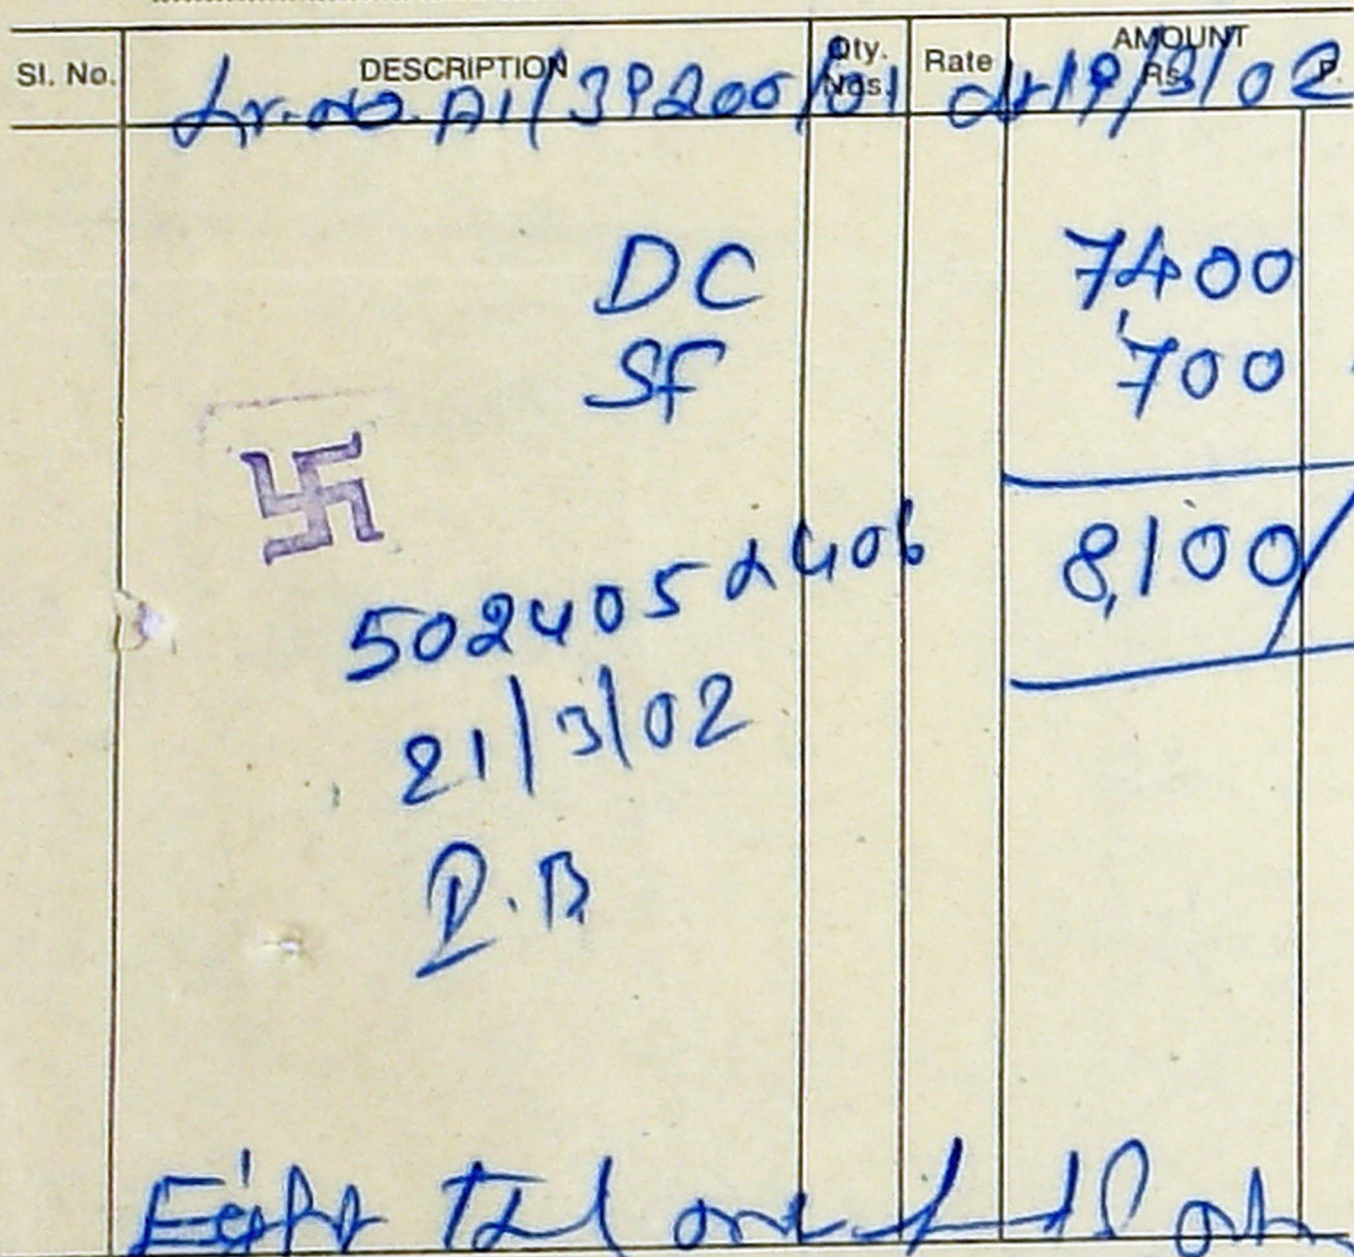 Sl. No. DESCRIPTION Qty. Nos. Rate AMOUNT Rs. P.
Lr. No. A1/39200/01 dt 19/3/02
DC 7400
SF 700
8,100/
5024052406
21/3/02
P.B
Eight